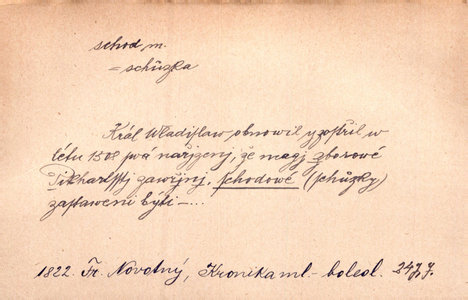 schod, m.
= schůzka
Král Wladislaw obnowil y zostřil w
létu 1508 swá nařjzenj, že magj zborowé
Pikhartsstj zawřjnj, schodowé (schůzky)
zastaweni býti –...
1822. Fr. Novotný, Kronika ml.-bolesl.